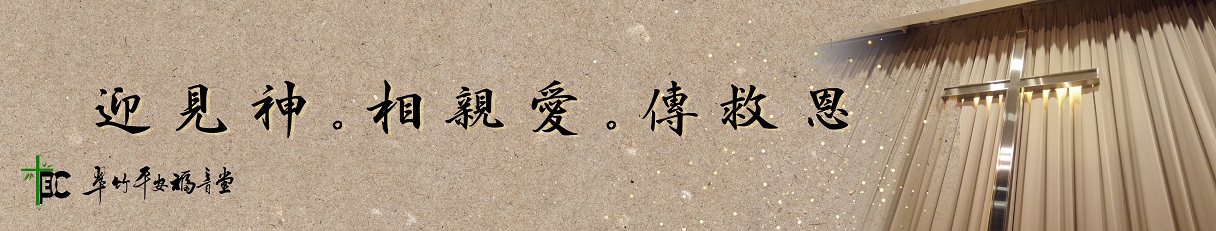 迎見神。相親愛。傳救恩
EC 翠竹平安福音堂